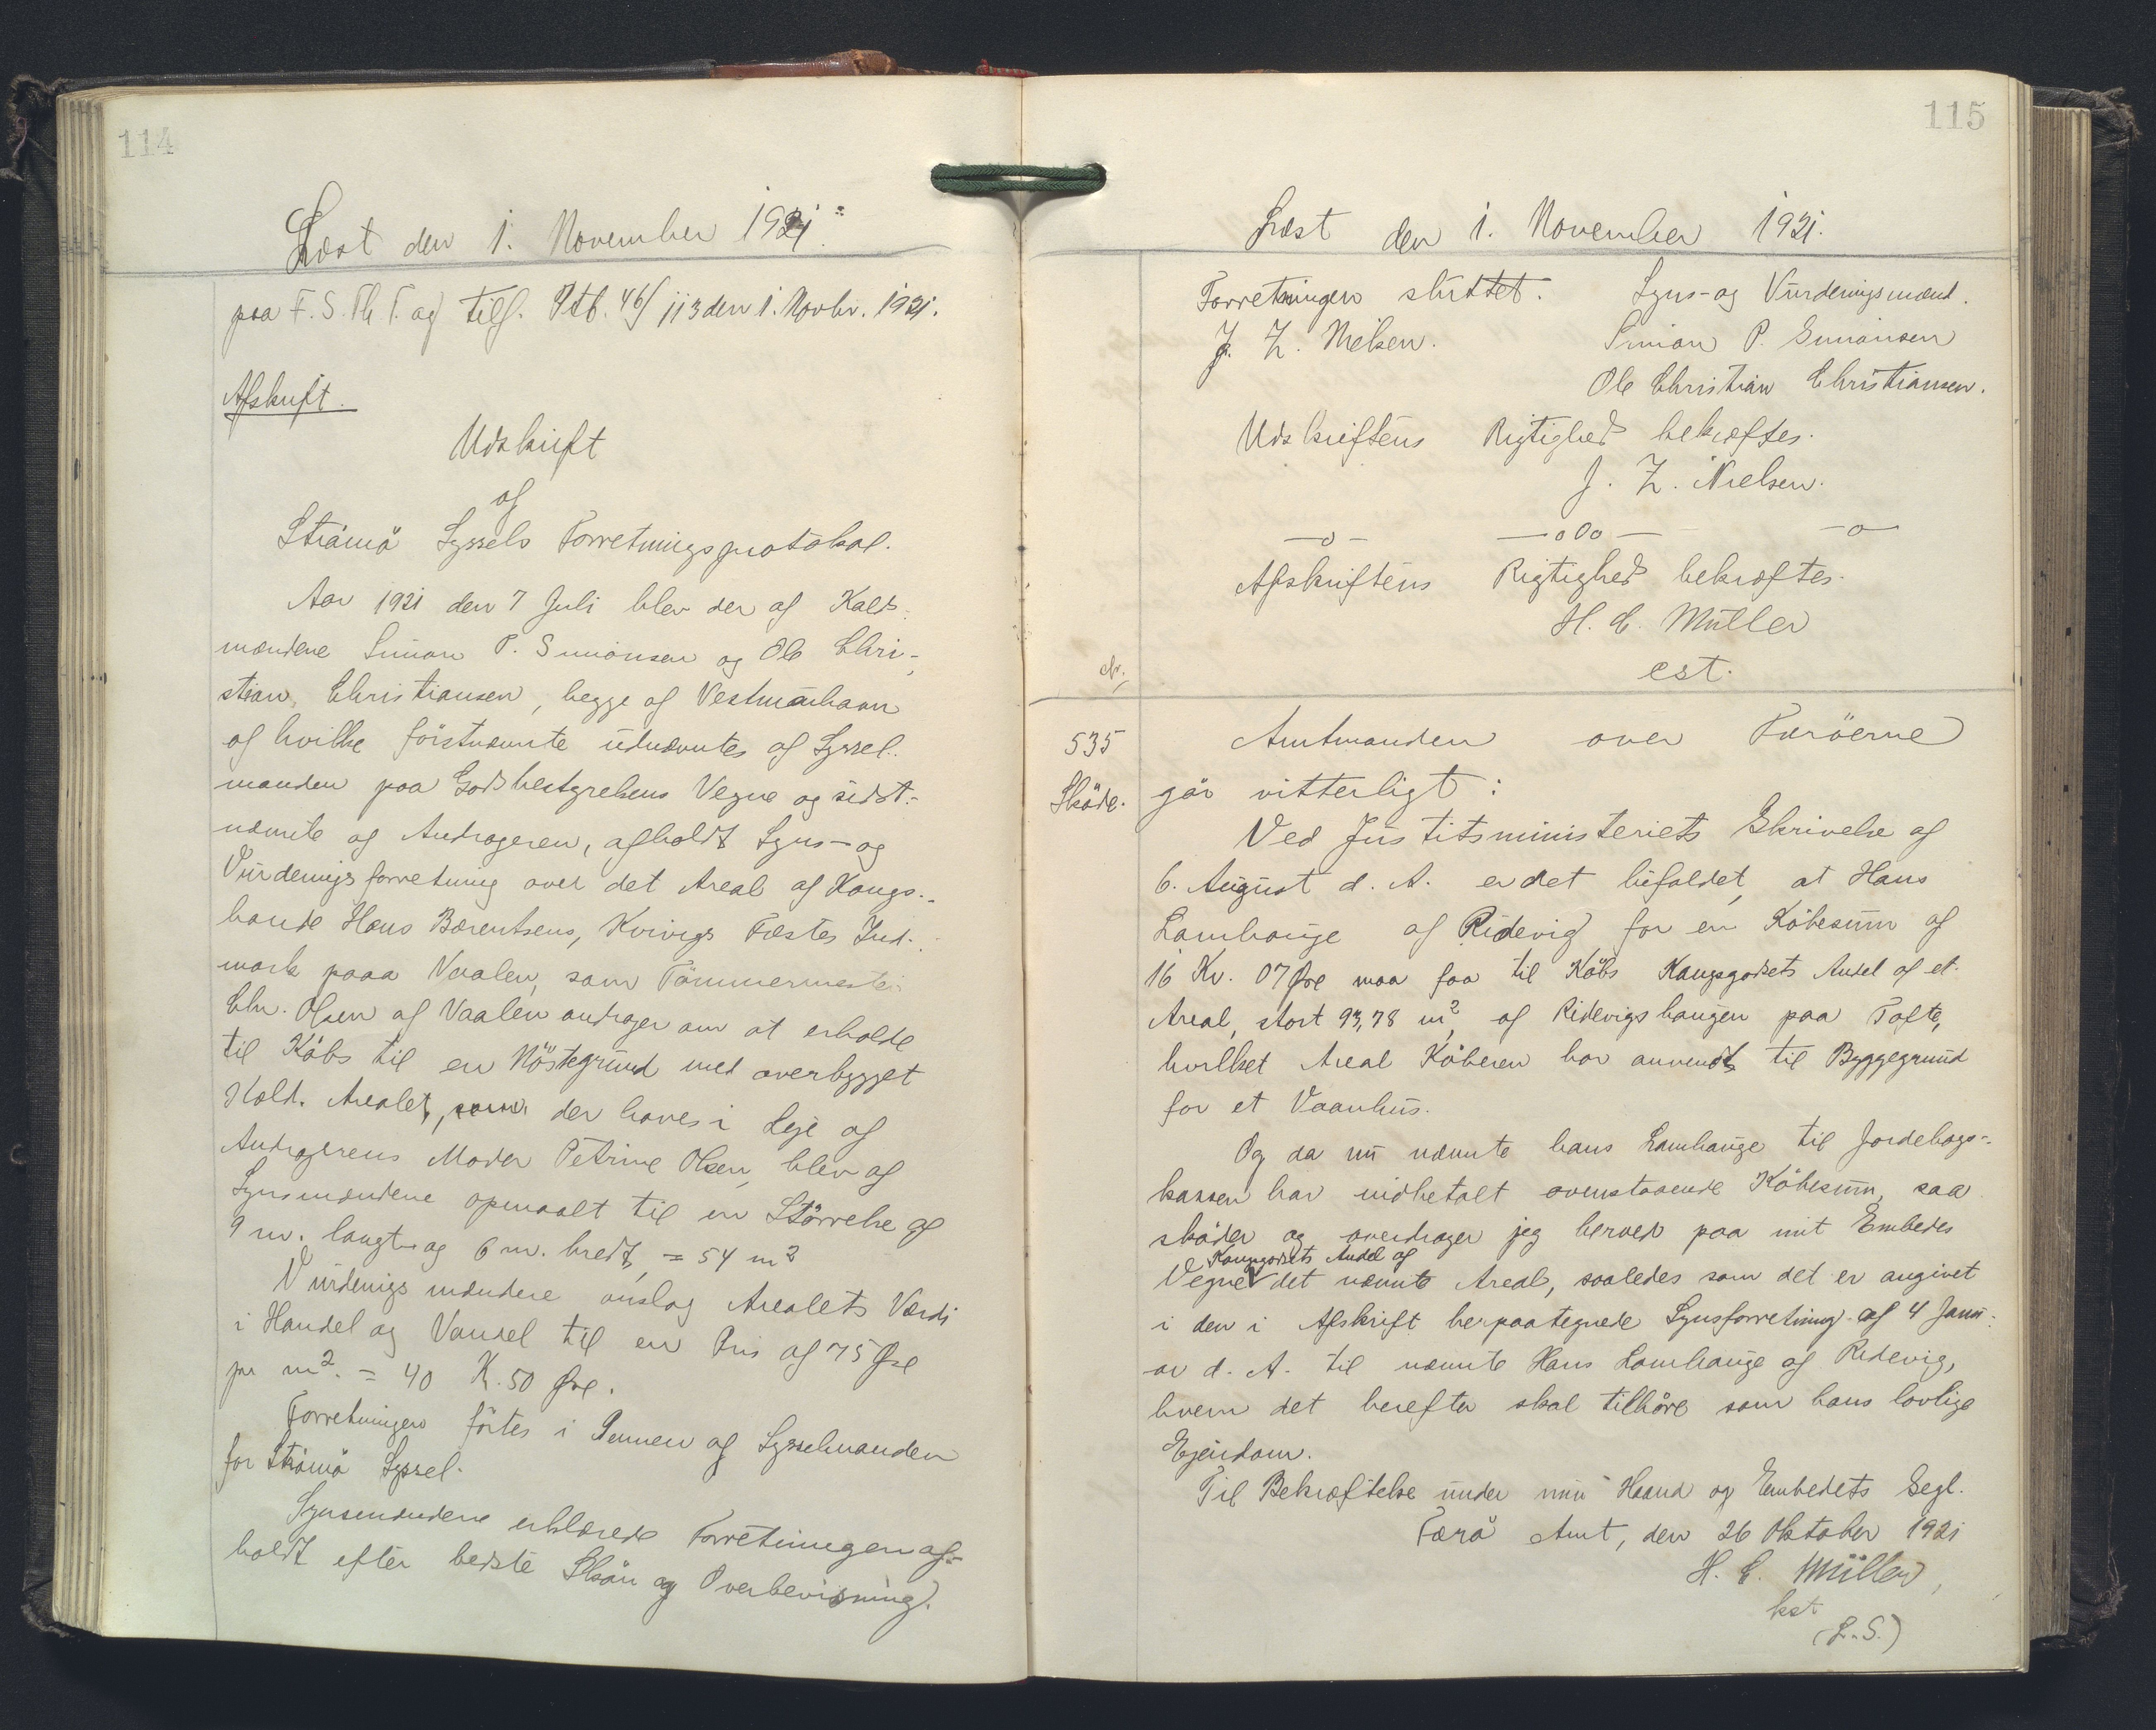 114
Læst den 1. November 1921.
paa F. S. Th T. og tilf. Ptb. 46/113 den 1. Novbr. 1921.
Afskrift.
Udskrift
af
Strömö Syssels Forretningsprotokol.
Aar 1921 den 7 Juli blev der af Kalds-
mændene Simon P. Simonsen og Ole Chri-
stian, Christiansen, begge af Vestmanhavn
af hvilke förstnævnte udnævntes af Syssel-
manden paa Godsbestyrelsens Vegne og sidst-
nævnte af Andrageren, afholdt Syns- og
Vurderingsforretning over det Areal af Kongs-
bonde Hans Bærentsens, Kvivigs Fæstes Ind-
mark paaa Vaalen, som Tömmermester
Chr. Olsen af Vaalen andrager om at erholde
til Köbs til en Nöstegrund med overbygget
Hold. Arealet, som der haves i Leje af
Andragerens Moder Petrine Olsen, blev af
Synsmændene opmaalt til en Störrelse af
9 m. langt og 6 m. bredt, = 54 m²
Vurderingsmændene anslog Arealets Værdi
i Handel og Vandel til en Pris af 75 Øre
pr m². = 40 K. 50 Øre.
Forretningen förtes i Pennen af Sysselmanden
for Strömö Syssel.
Synsmændene erklærede Forretningen af-
holdt efter bedste Skön og Overbevisning.
115
Læst den 1. November 1921.
Forretningen sluttet. Syns- og Vurderingsmænd.
J. Z. Nielsen. Simon P. Simonsen
Ole Christian Christiansen.
Udskriftens Rigtighed bekræftes.
J. Z. Nielsen.
—o— —o0o— —o—
Afskriftens Rigtighed bekræftes.
H. C. Müller
cst.
Nr.
535 Amtmanden over Færöerne
Sköde. gör vitterligt:
Ved Justitsministeriets Skrivelse af
6. August d. A. er det bifaldet, at Hans
Lamhauge af Ridevig for en Köbesum af
16 Kr. 07 Øre maa faa til Köbs Kongsgodsets Andel af et
Areal, stort 93,78 m², af Ridevigshaugen paa Tofte,
hvilket Areal Köberen har anvendt til Byggegrund
for et Vaanhus.
Og da nu nævnte hans Lamhauge til Jordebogs-
kassen har indbetalt ovenstaaende Köbesum, saa
sköder og overdrager jeg herved paa mit Embedes
Kongsgodsets Andel af
Vegne V det nævnte Areal, saaledes som det er angivet
i den i Afskrift herpaategnede Synsforretning af 4 Janu-
ar d. A. til nævnte Hans Lamhauge af Ridevig,
hvem det herefter skal tilhöre som hans lovlige
Ejendom.
Til Bekræftelse under min Haand og Embedets Segl.
Færö Amt, den 26 Oktober 1921
H. C. Müller,
kst
(L.S.)